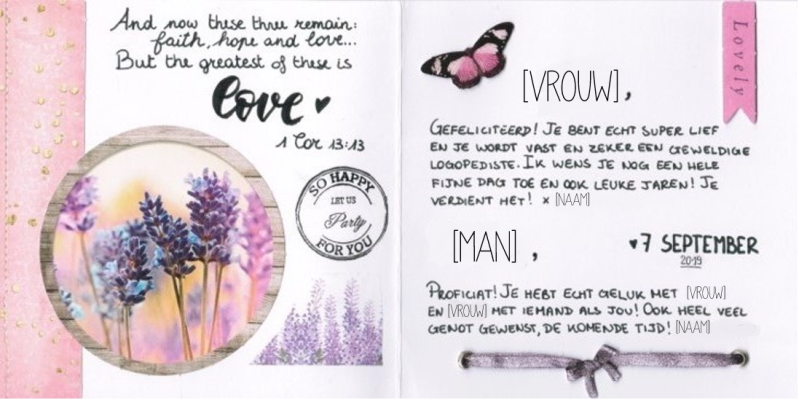 And now these three remain:
faith, hope and love...
But the greatest of these is
love ♥
1 Cor 13:13
SO HAPPY
LET US
Party
FOR YOU
Lovely
[VROUW],
GEFELICITEERD! JE BENT ECHT SUPER LIEF
EN JE WORDT VAST EN ZEKER EEN GEWELDIGE
LOGOPEDISTE. IK WENS JE NOG EEN HELE
FIJNE DAG TOE EN OOK LEUKE JAREN! JE
VERDIENT HET! x [NAAM]
[MAN],
♥7 SEPTEMBER
2019
PROFICIAT! JE HEBT ECHT GELUK MET [VROUW]
EN [VROUW] MET IEMAND ALS JOU! OOK HEEL VEEL
GENOT GEWENST, DE KOMENDE TIJD! [NAAM]